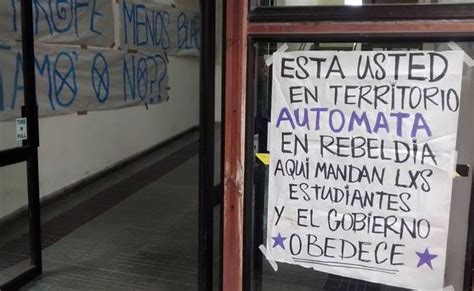 PROFE MENOS BLA
AMÓ O NO??
TIRE
PULL
ESTA USTED
EN TERRITORIO
AUTOMATA
EN REBELDIA
AQUI MANDAN LXS
ESTUDIANTES
Y EL GOBIERNO
★ OBEDECE ★